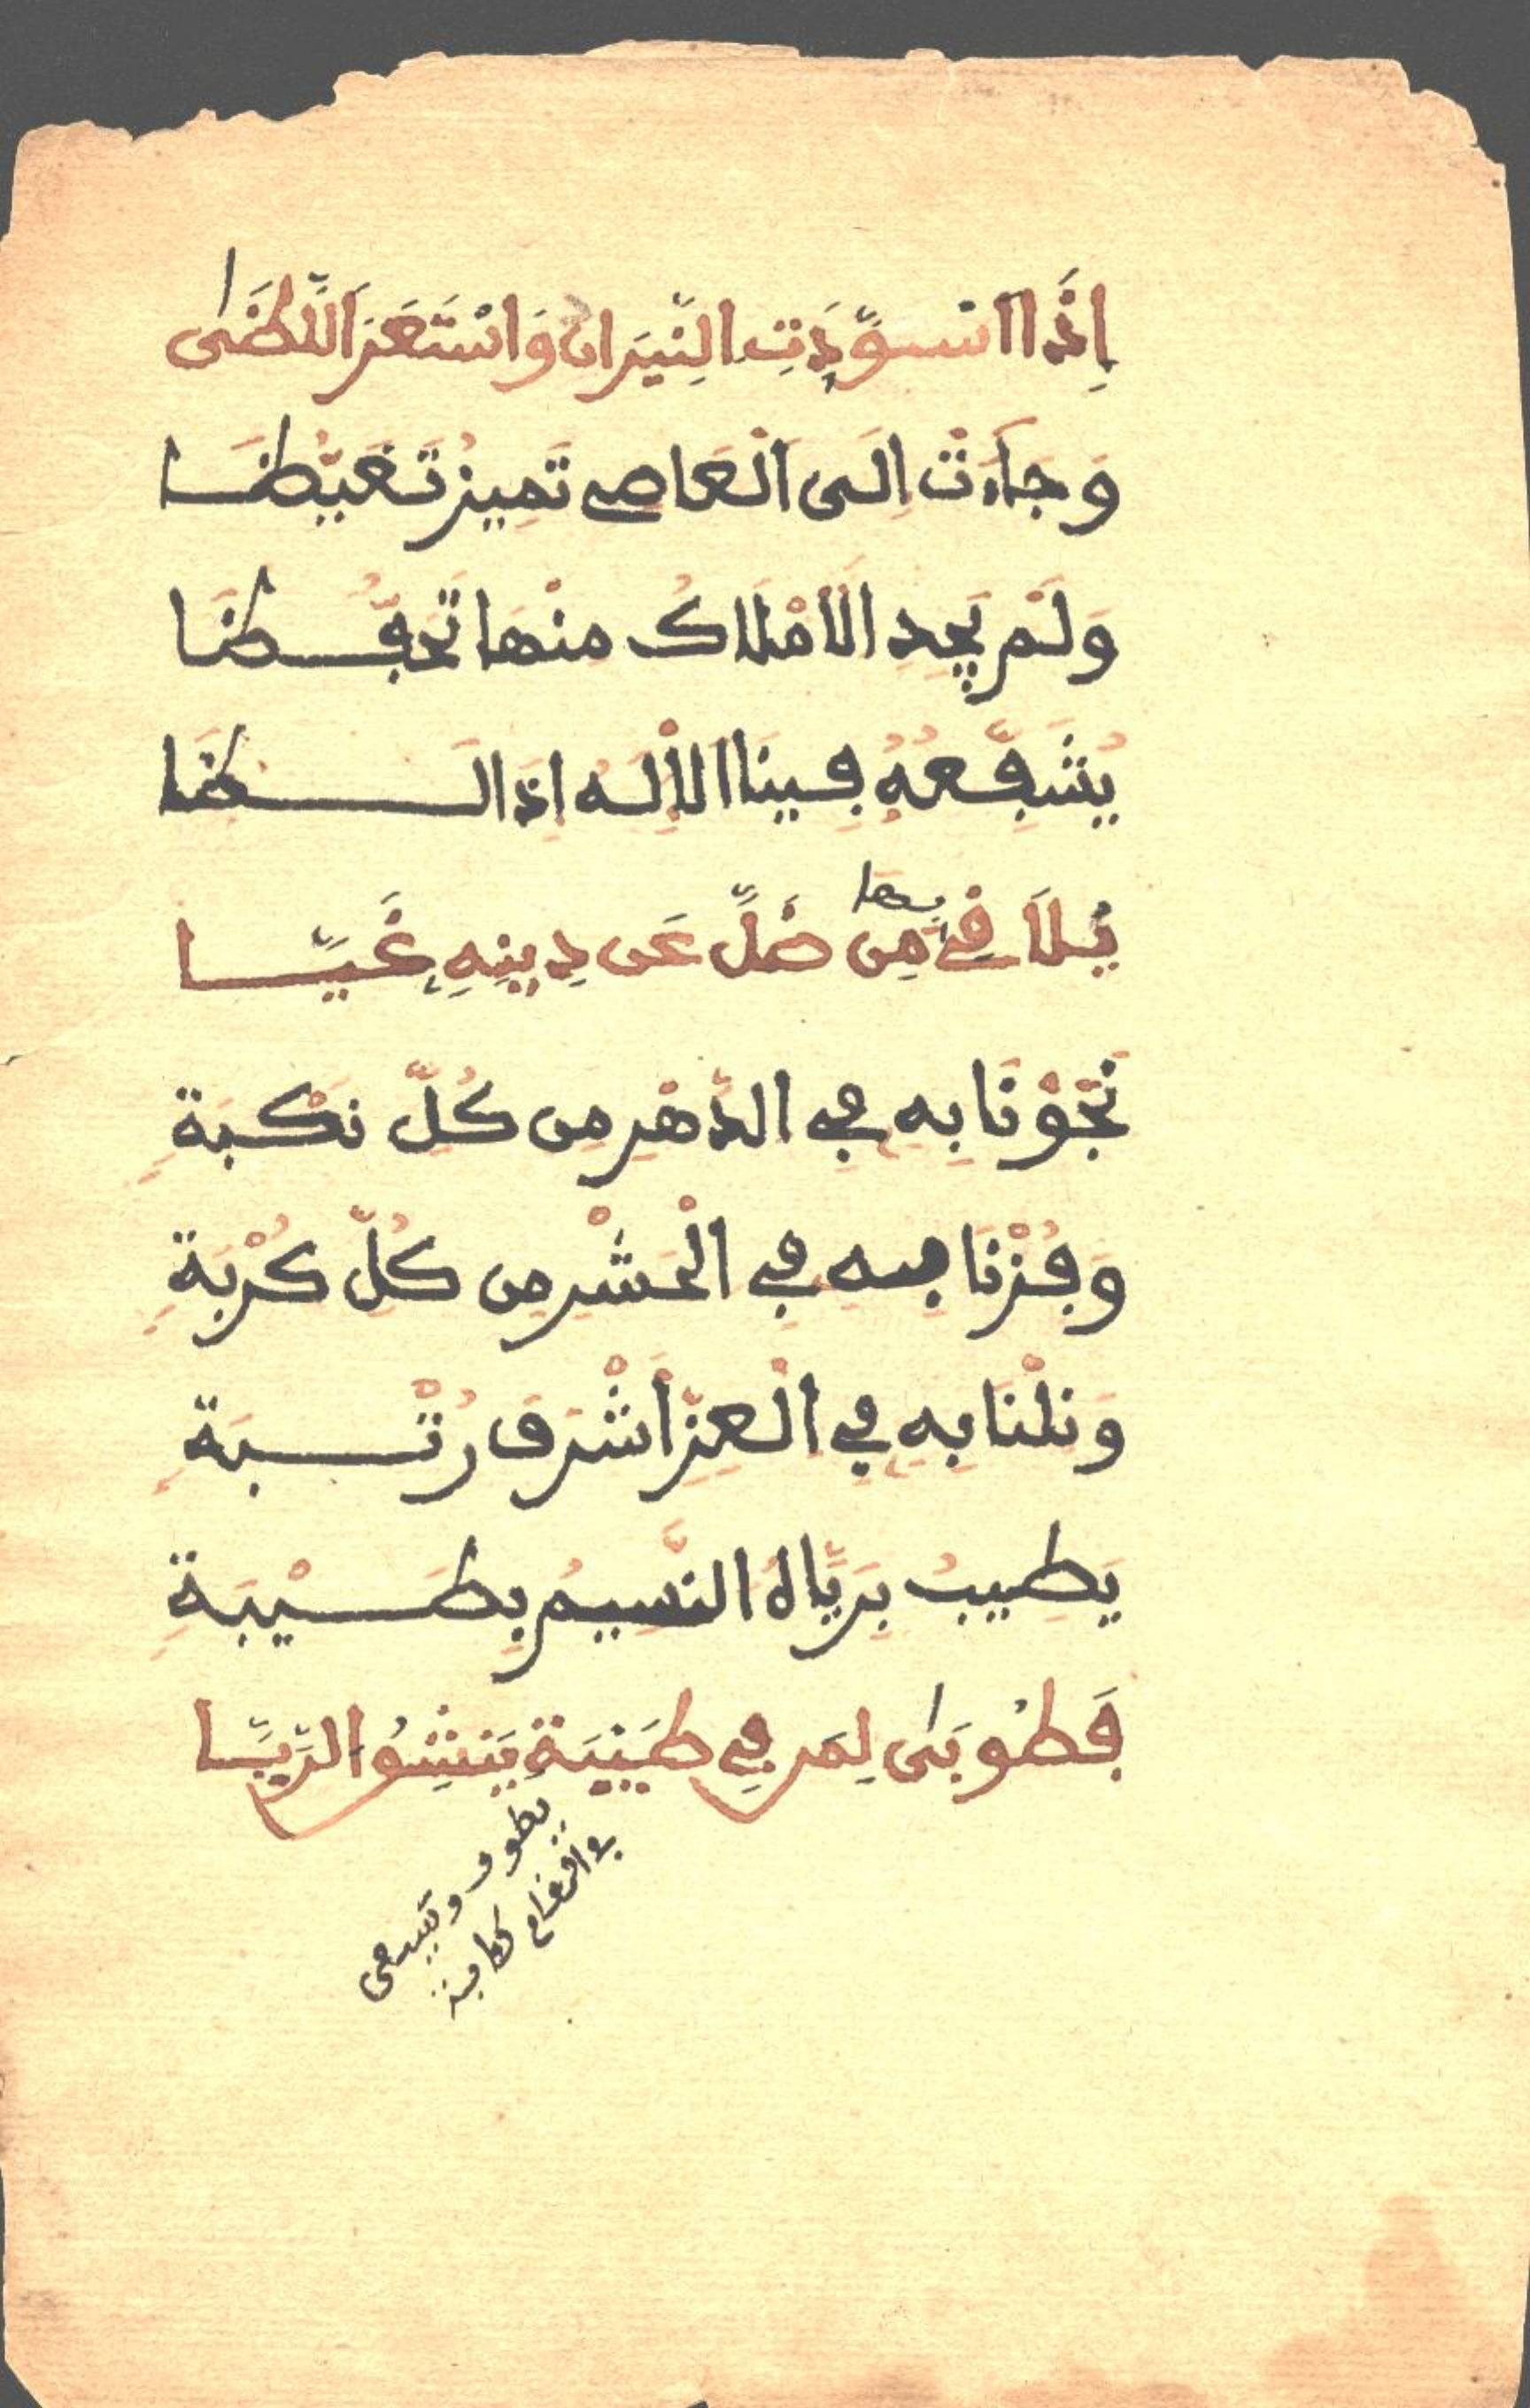 إِذَا اسْوَدَّتِ النِّيرَان وَاسْتَعَرَ اللَّظَى
وَجَاءَتْ إِلَى الْعَاصِي تَمِيزُ تَغَيُّظَا
وَلَمْ يَجِدِ الْأَمْلَاكُ مِنْهَا تَحَفُّظَا
يُشَفِّعُهُ فِينَا الْإِلَهُ إِذَا لَظَا
يُلَاقِي بها مِن ضَلَّ عَن دِينِهِ غَيَّا
نَجَوْنَا بِهِ فِي الدَّهْرِ مِن كُلِّ نَكْبَةِ
وَفُزْنَا بِهِ فِي الْحَشْرِ مِن كُلِّ كُرْبَةِ
وَنِلْنَا بِهِ فِي الْعِزِّ أَشْرَفَ رُتْبَةِ
يَطِيبُ بِرَيَّاهُ النَّسِيمُ بِطَيْبَةِ
فَطُوبَى لِمَن فِي طَيْبَةَ يَنْشِقُ الرَّيَّا